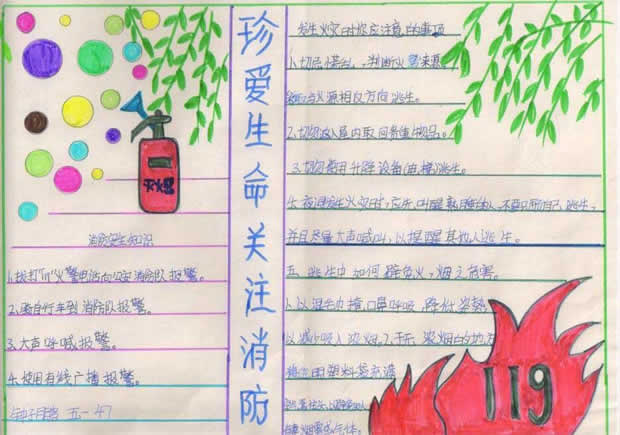 珍爱生命关注消防
灭火器
消防安全知识
1.拨打"119"火警电话向公安消防队报警。
2.骑自行车到消防队报警。
3.大声呼喊报警。
4.使用有线广播报警。
五一47
发生火灾时你应注意的事项
1.切忌慌乱,判断火势来源
与火源相反方向逃生。
2.切勿返入屋内取回贵重物品。
3.切勿使用升降设备(电梯)逃生。
4.夜间发生火灾时,应先叫醒熟睡的人,不要只顾自己逃生,
并且尽量大声喊叫,以提醒其他人逃生。
五.逃生中如何避免火,烟之危害。
1.以湿毛巾掩口鼻呼吸,降低姿势
以减少吸入浓烟。2.在 浓烟的地方
用塑料袋充满
119